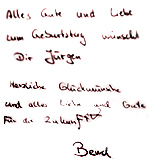 Alles Gute und Liebe
zum Geburtstag wünscht
Dir Jürgen
Herzliche Glückwünsche
und alles Liebe und Gute
Für die Zukunft
Bernd